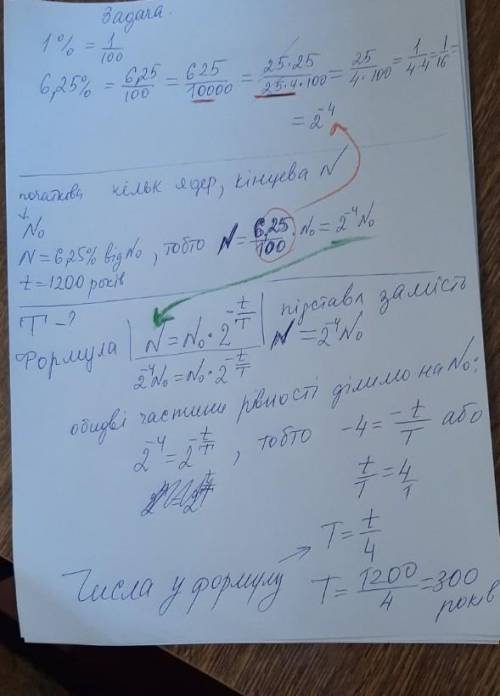 Задача.
1% = 1/100
6,25% = 6,25/100 = 625/10000 = 25·25/25·4·100 = 25/4·100 = 1/4·4 = 1/16 =
= 2^-4
початкова кільк ядер, кінцева N
↓
N₀
N = 6,25% від N₀, тобто N = 6,25/100 · N₀ = 2^-4 N₀
t = 1200 років
T - ?
Формула | N = N₀ · 2^-t/T | підставл замість
2^-4 N₀ = N₀ · 2^-t/T N = 2^-4 N₀
обидві частини рівності ділимо на N₀:
2^-4 = 2^-t/T, тобто -4 = -t/T або
t/T = 4/1
T = t/4
Числа у формулу T = 1200/4 = 300
років